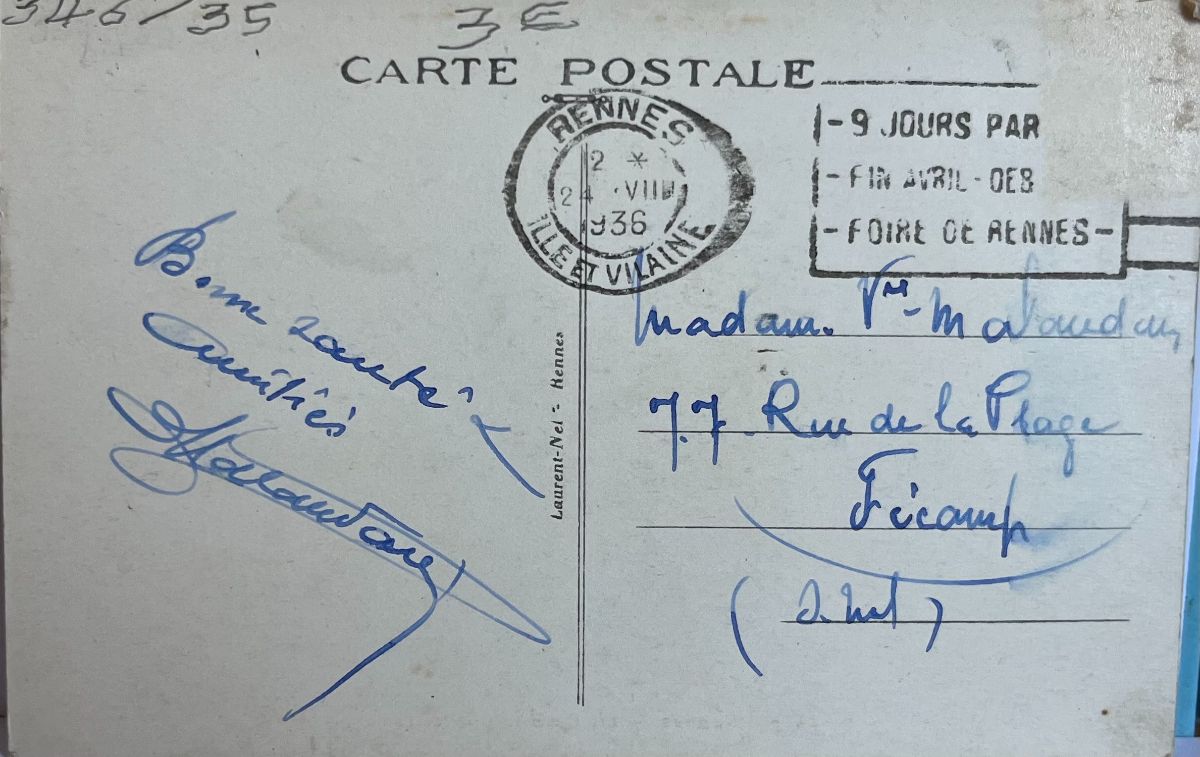 346/35
3 E
CARTE POSTALE
RENNES
2 *
24 VIII
1936
ILLE ET VILAINE
-9 JOURS PAR
-FIN AVRIL-DEB
-FOIRE DE RENNES-
Bonne santé &
Amitiés
Laurent-Nel - Rennes
Madame Vve
77 Rue de la Plage
Fécamp
(S. Inf)